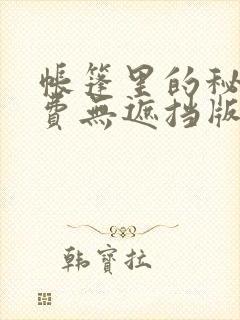 帳篷里的秘
費無遮挡版
韩寳拉